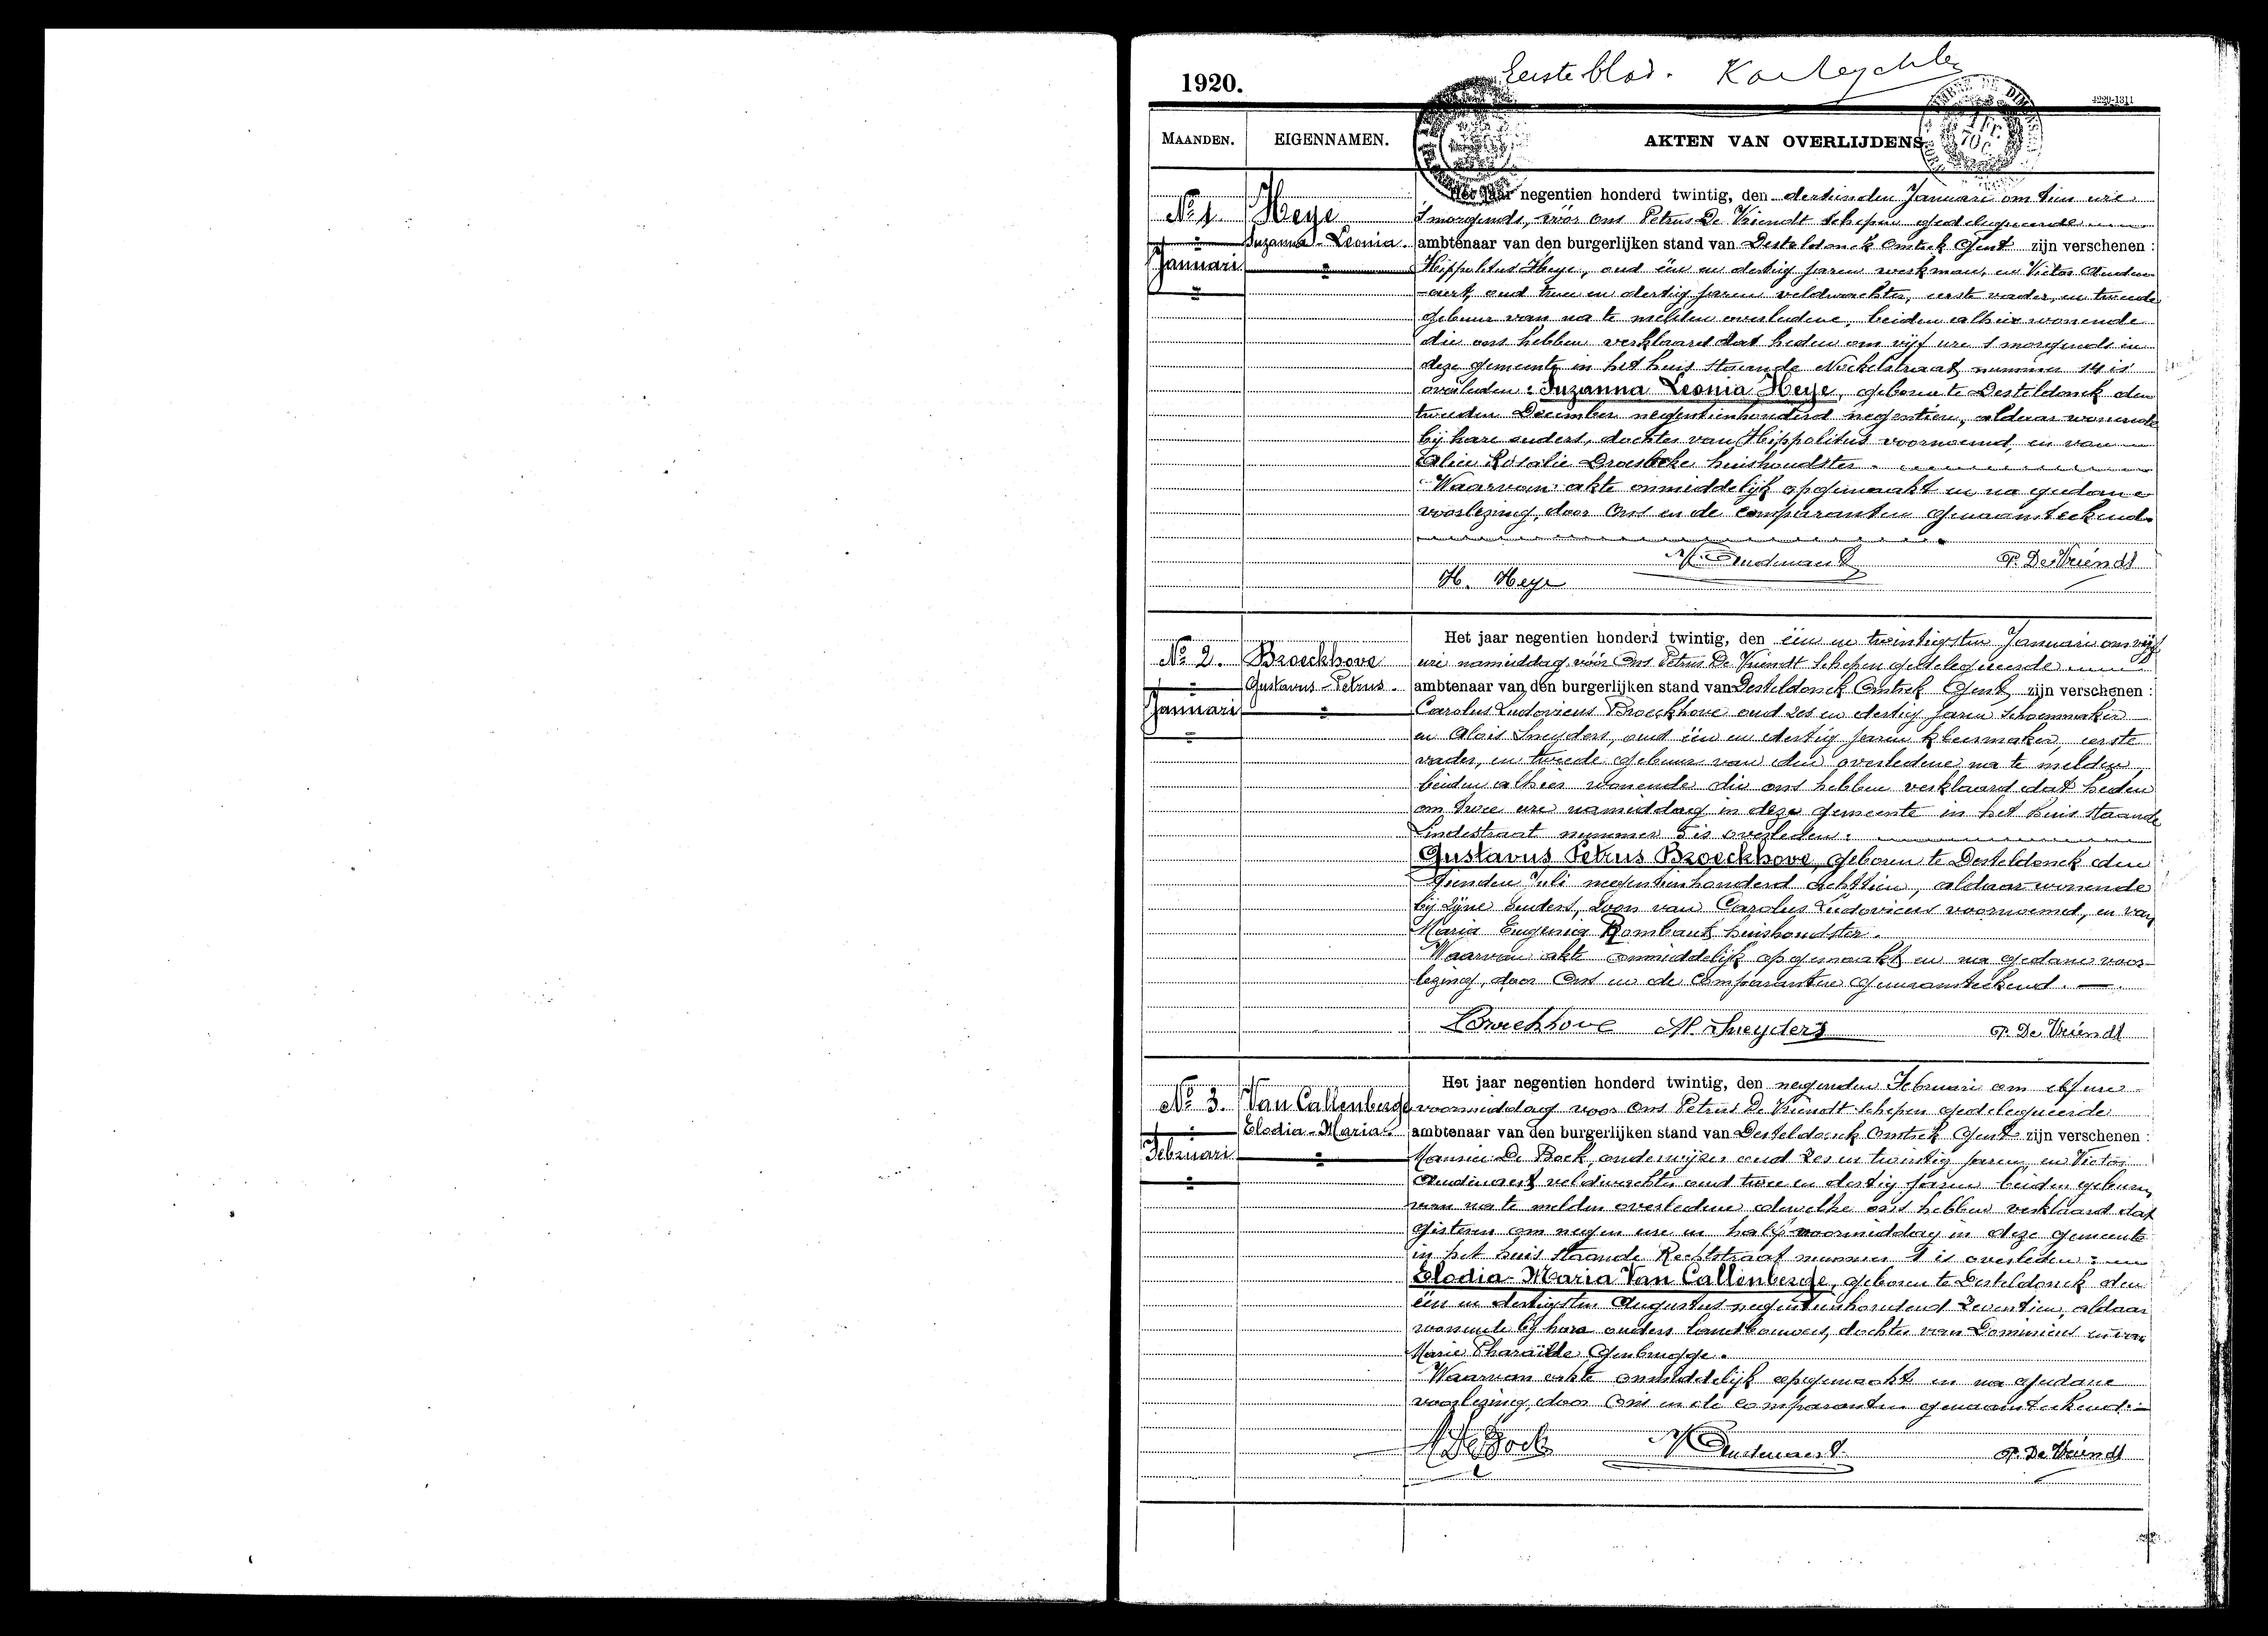 1920.
Eerste blad.
4229-1311
MAANDEN.
EIGENNAMEN.
AKTEN VAN OVERLIJDENS.
No 1.
Heye
Suzanna-Leonia.
Januari
Het jaar negentien honderd twintig, den dertienden Januari om tien ure
's morgends, vóór ons Petrus De Vriendt schepen gedelegueerde
ambtenaar van den burgerlijken stand van Desteldonck Omtrek Gent zijn verschenen :
Hippolitus Heye, oud één en dertig jaren werkman, en Victor Audenaert,
oud twee en dertig jaren veldwachter, eerste vader, en tweede
gebuur van na te melden overledene, beiden alhier wonende
die ons hebben verklaard dat heden om vijf ure 's morgends in
deze gemeente in het huis staande straat nummer 14 is
overleden : Suzanna Leonia Heye, geboren te Desteldonck den
tweeden December negentienhonderd negentien, aldaar wonende
bij hare ouders, dochter van Hippolitus voornoemd, en van
Alice Rosalie huishoudster.
Waarvan akte onmiddelijk opgemaakt en na gedane
voorlezing, door Ons en de comparanten genaamteekend.
H. Heye
V. Audenaert
P. De Vriendt
No 2.
Broeckhove
Gustavus-Petrus.
Januari
Het jaar negentien honderd twintig, den één en twintigsten Januari om vijf
ure namiddag, vóór Ons Petrus De Vriendt schepen gedelegueerde
ambtenaar van den burgerlijken stand van Desteldonck Omtrek Gent zijn verschenen :
Carolus Ludovicus Broeckhove oud zes en dertig jaren schoenmaker
en Alois Sneyders, oud één en dertig jaren kleermaker, eerste
vader, en tweede gebuur van den overledene na te melden,
beiden alhier wonende die ons hebben verklaard dat heden
om twee ure namiddag in deze gemeente in het huis staande
Lindestraat nummer 5 is overleden :
Gustavus Petrus Broeckhove, geboren te Desteldonck den
tienden Juli negentienhonderd achttien, aldaar wonende
bij zijne ouders, zoon van Carolus Ludovicus voornoemd, en van
Maria Eugenia Rombaut huishoudster.
Waarvan akte onmiddelijk opgemaakt en na gedane voorlezing,
door Ons en de comparanten genaamteekend.
Broeckhove
Al. Sneyders
P. De Vriendt
No 3.
Van Callenberge
Elodia-Maria.
Februari
Het jaar negentien honderd twintig, den negenden Februari om elf ure
voormiddag voor Ons Petrus De Vriendt schepen gedelegueerde
ambtenaar van den burgerlijken stand van Desteldonck Omtrek Gent zijn verschenen :
De Bock, onderwijzer oud zes en twintig jaren, en Victor
Audenaert veldwachter oud twee en dertig jaren beiden geburen
van na te melden overledene dewelke ons hebben verklaard dat
gisteren om negen ure en half voormiddag in deze gemeente
in het huis staande Rechtstraat nummer 1 is overleden :
Elodia-Maria Van Callenberge, geboren te Desteldonck den
één en dertigsten Augustus negentienhonderd zeventien, aldaar
wonende bij hare ouders landbouwers, dochter van Dominicus en van
Marie Pharaïlde Genbrugge.
Waarvan akte onmiddelijk opgemaakt en na gedane
voorlezing, door Ons en de comparanten genaamteekend.
De Bock
V. Audenaert
P. De Vriendt